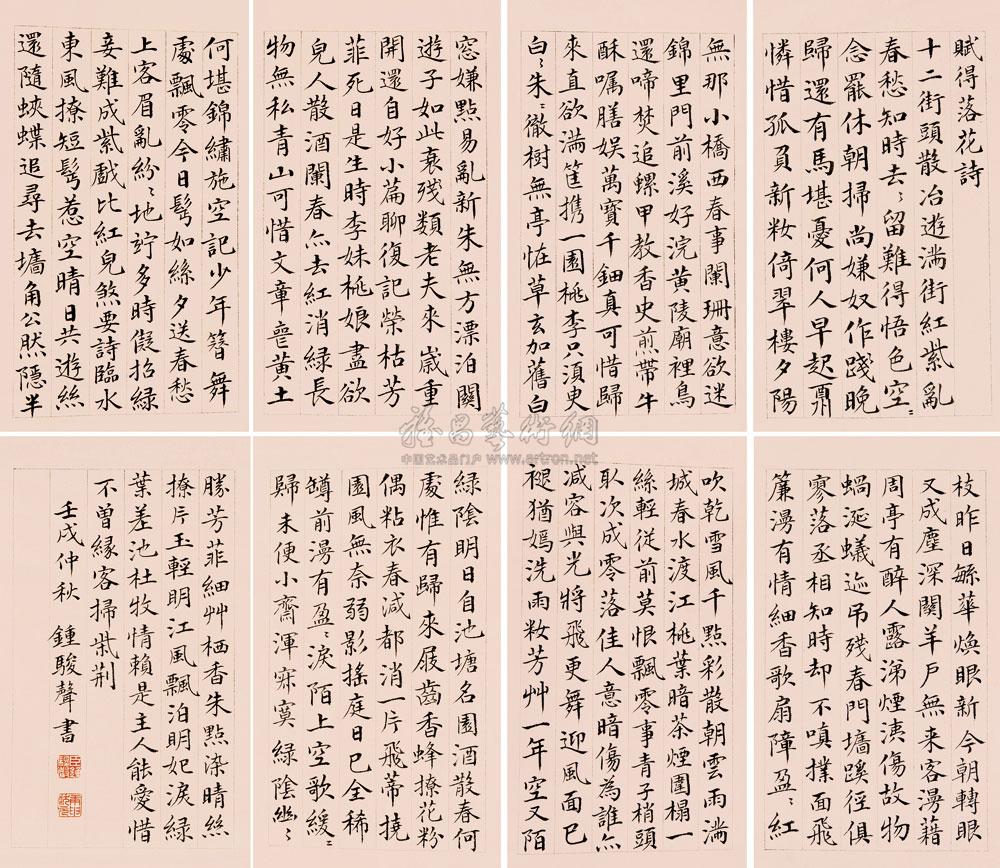 賦得落花詩
十二街頭散冶遊滿街紅紫亂
春愁知時去〻留難得悟色空〻
念罷休朝掃尚嫌奴作踐晚
歸還有馬堪憂何人早起
憐惜孤負新妝倚翠樓夕陽
無那小橋西春事闌珊意欲迷
錦里門前溪好浣黃陵廟裡鳥
還啼焚追螺甲教香史煎帶牛
酥囑膳娛萬寶千鈿真可惜歸
來直欲滿筐攜一園桃李只湏更
白〻朱〻徹樹無亭恠草玄加舊白
窓嫌點易亂新朱無方漂泊關
遊子如此衰殘類老夫來嵗重
開還自好小篇聊復記榮枯芳
菲死日是生時李妹桃娘盡欲
兒人散酒闌春亦去紅消綠長
物無私青山可惜文章喪黃土
何堪錦繡施空記少年簪舞
處飄零今日髩如絲夕送春愁
上客眉亂紛〻地竚多時假招綠
妾難成紫戲比紅兒煞要詩臨水
東風撩短髩惹空晴日共遊絲
還隨蛺蝶追尋去墻角公然隱半
枝昨日繁華煥眼新今朝轉眼
又成塵深關羊戶無來客漫藉
周亭有醉人露涕煙洟傷故物
蝸涎蟻迹弔殘春門墻蹊徑俱
寥落丞相知時却不嗔撲面飛
簾漫有情細香歌扇障盈〻紅
吹乾雪風千點彩散朝雲雨滿
城春水渡江桃葉暗茶煙圍榻一
絲輕從前莫恨飄零事青子梢頭
取次成零落佳人意暗傷為誰亦
減容與光將飛更舞迎風面已
褪猶嫣洗雨妝芳艸一年空又陌
綠陰明日自池塘名園酒散春何
處惟有歸來屐齒香蜂撩花粉
偶粘衣春減都消一片飛蒂撓
園風無奈弱影搖庭日已全稀
罇前漫有盈〻淚陌上空歌緩〻
歸未便小齋渾寂寞綠陰幽〻
勝芳菲細艸栖香朱點染晴絲
撩片玉輕明江風飄泊明妃淚綠
葉差池杜牧情賴是主人能愛惜
不曾緣客掃柴荆
壬戌仲秋 鍾駿聲書
雅昌藝術網
中国艺术品门户 www.artron.net